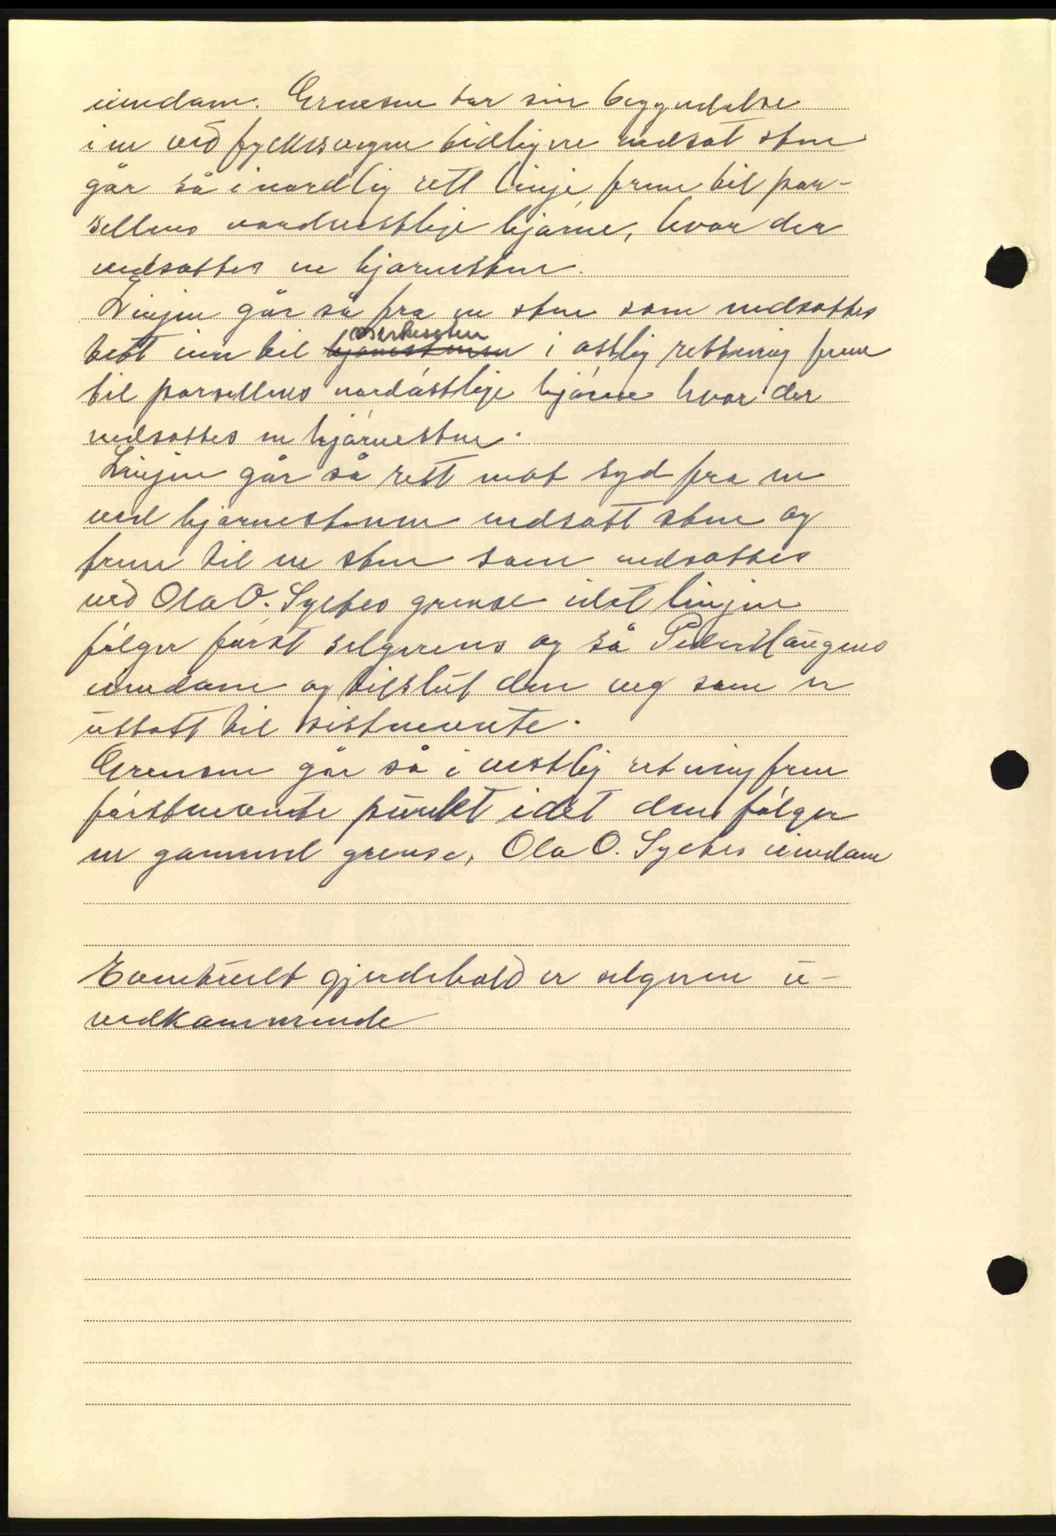 eiendom. Grensen tar sin begyndelse
i en ved fylkesvegen tidligere nedsat sten
går så i nordlig rett linje frem til par-
sellens nordvestlige hjørne, hvor der
nedsattes en hjørnesten.
Linjen går så fra en sten som nedsattes
tett inn til merkesten i østlig rettning frem
til parsellens nordøstlige hjørne hvor der
nedsattes en hjørnesten.
Linjen går så rett mot syd fra en
ved hjørnestenen nedsatt sten og
frem til en sten som nedsattes
ved Ola O. Syltes grense idet linjen
følger først selgerens og så Peder Haugens
eiendom og tilslut den veg som er
utlatt til sistnevnte.
Grensen går så i vestlig retning frem
førstnevnte punkt idet den følger
en gammel grense, Ola O. Syltes eiendom
Eventuelt gjerdehold er selgeren u-
vedkommende